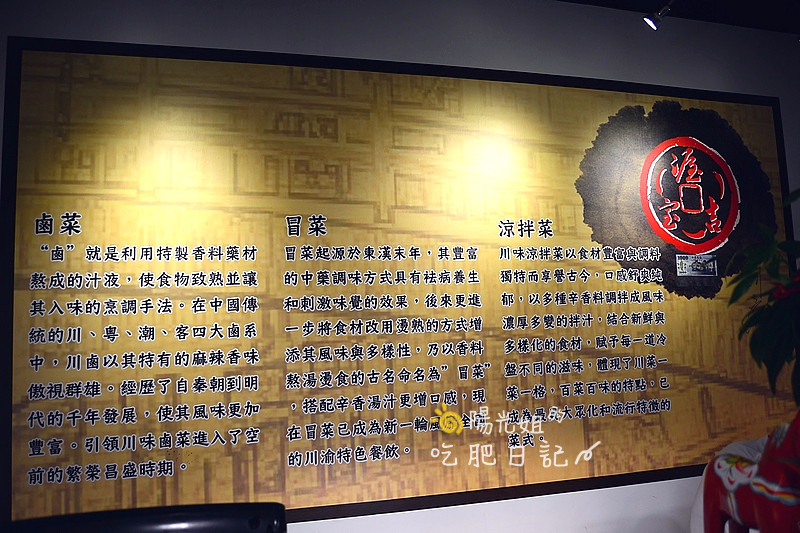 鹵菜
“鹵”就是利用特製香料藥材
熬成的汁液，使食物致熟並讓
其入味的烹調手法。在中國傳
統的川、粵、潮、客四大鹵系
中，川鹵以其特有的麻辣香味
傲視群雄。經歷了自秦朝到明
代的千年發展，使其風味更加
豐富。引領川味鹵菜進入了空
前的繁榮昌盛時期。
冒菜
冒菜起源於東漢末年，其豐富
的中藥調味方式具有祛病養生
和刺激味覺的效果，後來更進
一步將食材改用燙熟的方式增
添其風味與多樣性，乃以香料
熬湯燙食的古名命名為”冒菜”
，搭配辛香湯汁更增口感，現
在冒菜已成為新一輪風 全
的川渝特色餐飲。
涼拌菜
川味涼拌菜以食材豐富與調料
獨特而享譽古今，口感鮮與純
郁，以多種辛香料調拌成風味
濃厚多變的拌汁，結合新鮮與
多樣化的食材，賦予每一道冷
盤不同的滋味，體現了川菜一
菜一格，百菜百味的特點，已
成為最 大眾化和流行特徵的
菜式。
宝吉
陽光姐
吃肥日記